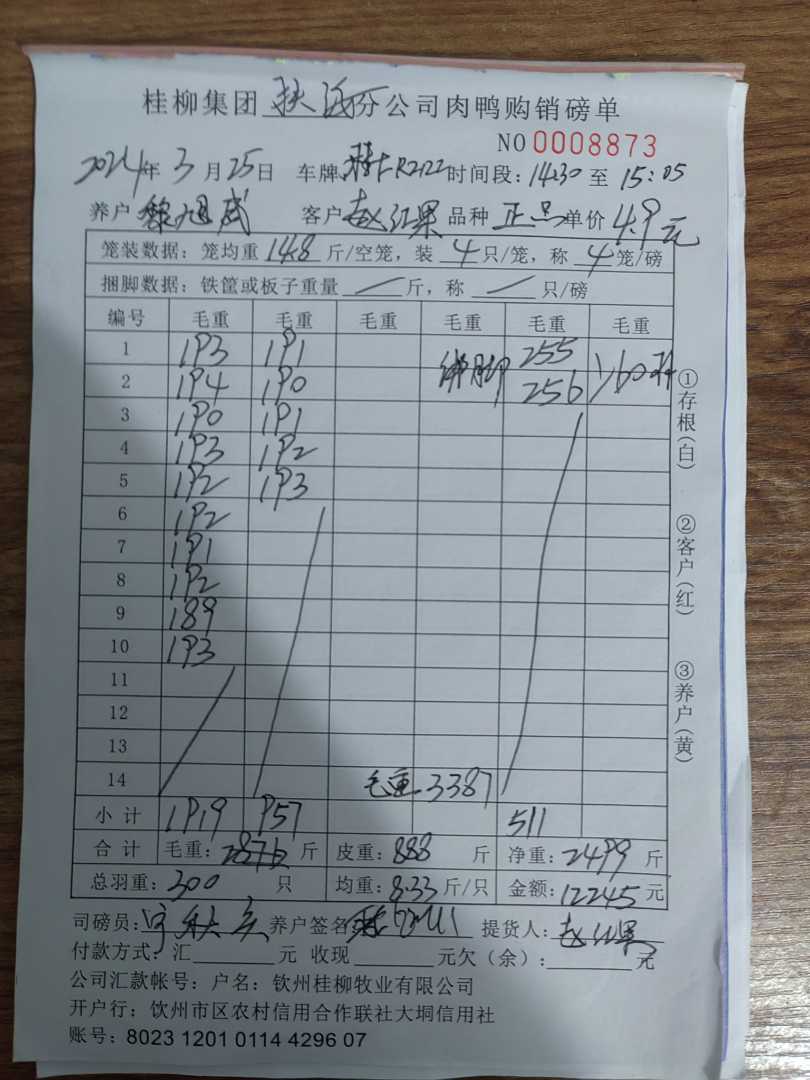 桂柳集团 分公司肉鸭购销磅单
NO 0008873
2024年 3月25日 车牌 R2122 时间段：14:30 至 15:05
养户 黎旭 客户 赵红果 品种 正 单价 4.9 元
笼装数据：笼均重 148 斤/空笼，装 4 只/笼，称 4 笼/磅
捆脚数据：铁筐或板子重量 斤，称 只/磅
编号 毛重 毛重 毛重 毛重 毛重 毛重
1 193 191 绑脚 255 1/60只
2 194 190 256
3 190 191
4 193 192
5 192 193
6 192
7 191
8 192
9 189
10 193
11
12
13
14 毛重 3387
小计 1919 957 511
合计 毛重：2876 斤 皮重：888 斤 净重：2499 斤
总羽重：300 只 均重：8.33 斤/只 金额：12245 元
司磅员： 养户签名 提货人：赵红果
付款方式：汇 元 收现 元欠（余）： 元
公司汇款帐号：户名：钦州桂柳牧业有限公司
开户行：钦州市区农村信用合作联社大垌信用社
账号：8023 1201 0114 4296 07
①存根(白) ②客户(红) ③养户(黄)